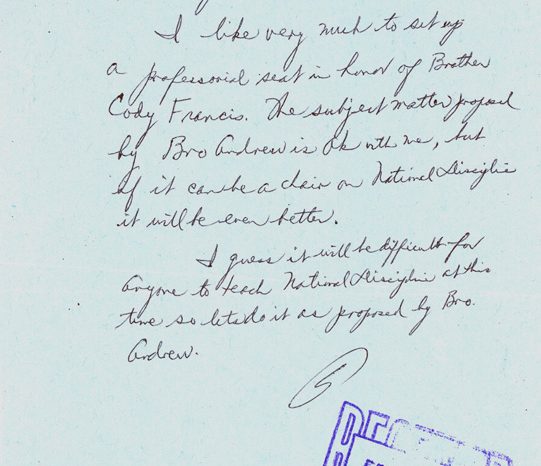 I like very much to set up
a professorial seat in honor of Brother
Cody Francis. The subject matter proposed
by Bro Andrew is ok with me, but
if it can be a chair on National Discipline
it will be even better.
I guess it will be difficult for
anyone to teach National Discipline at this
time so lets do it as proposed by Bro.
Andrew.